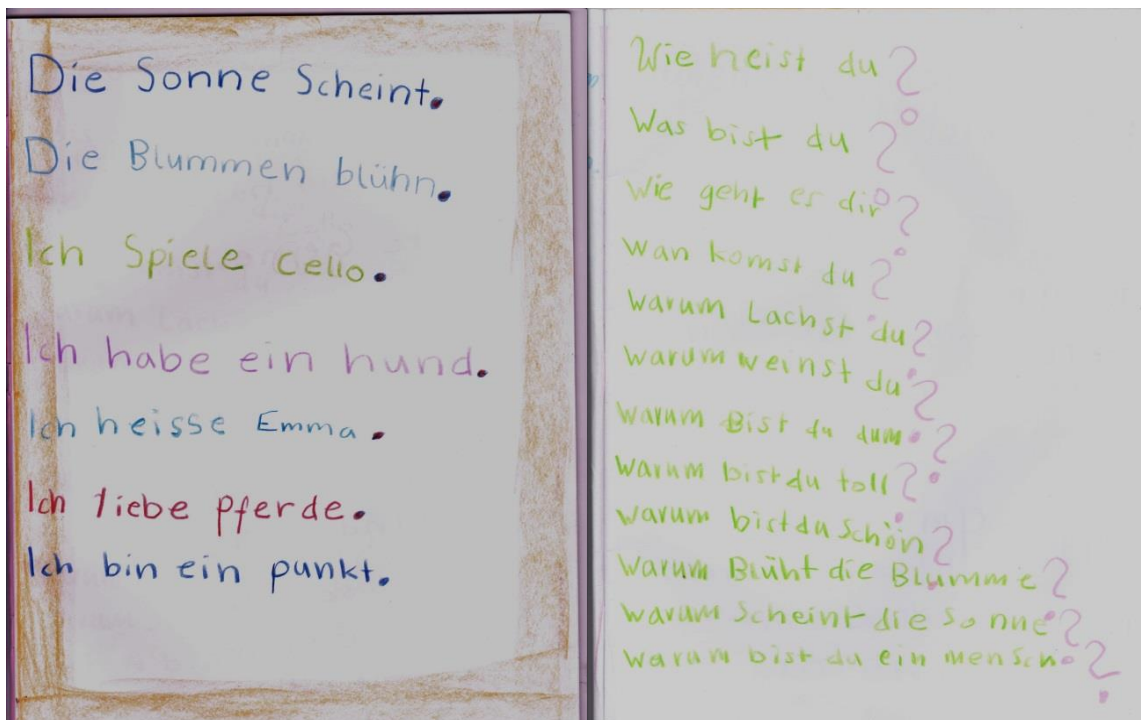 Die Sonne Scheint.
Die Blummen blühn.
Ich Spiele Cello.
Ich habe ein hund.
Ich heisse Emma.
Ich liebe pferde.
Ich bin ein punkt.
Wie heist du?
Was bist du?
Wie geht es dir?
Wan komst du?
Warum Lachst du?
warum weinst du?
warum Bist du dum?
warum bist du toll?
warum bist du Schön?
warum Blüht die Blumme?
warum Scheint die Sonne?
warum bist du ein mensch?